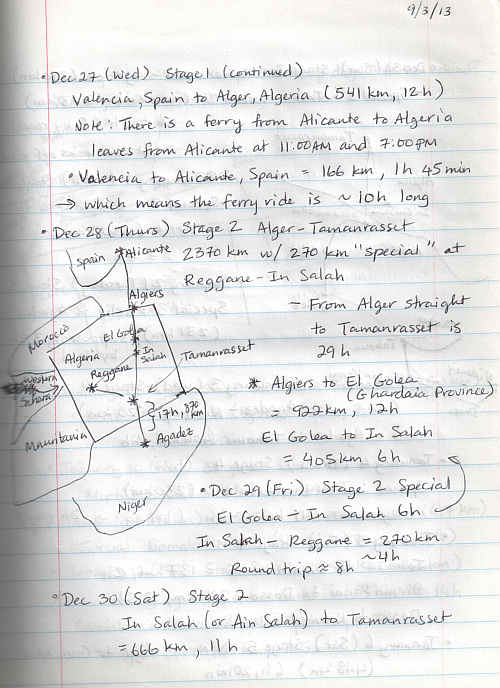 9/3/13
• Dec 27 (Wed) - Stage 1 (continued)
Valencia, Spain to Alger, Algeria (541 km, 12h)
Note: There is a ferry from Alicante to Algeria
leaves from Alicante at 11:00AM and 7:00PM
• Valencia to Alicante, Spain = 166 km, 1h 45min
→ which means the ferry ride is ~10h long
• Dec 28 (Thurs) Stage 2 Alger-Tamanrasset
2370 km w/ 270 km "special" at
Reggane-In Salah
- From Alger straight
to Tamanrasset is
29 h
* Algiers to El Golea
(Ghardaia Province)
= 922 km, 12h
El Golea to In Salah
= 405 km 6h
• Dec 29 (Fri) Stage 2 Special
El Golea - In Salah 6h
In Salah - Reggane = 270km
~4h
Round trip ≈ 8h
• Dec 30 (Sat) Stage 2
In Salah (or Ain Salah) to Tamanrasset
= 666 km, 11h
Spain
Alicante
Algiers
Morocco
El Golea
Algeria
In
Salah
Reggane
Tamanrasset
Western
Sahara
17h, 870
km
Mauritania
Agadez
Niger